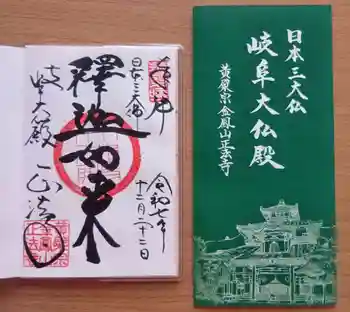 奉拝
日本三大佛
釋迦如来
岐阜大仏殿
令和七年
十二月二十二日
日本三大仏
岐阜大仏殿
黄檗宗金鳳山正法寺